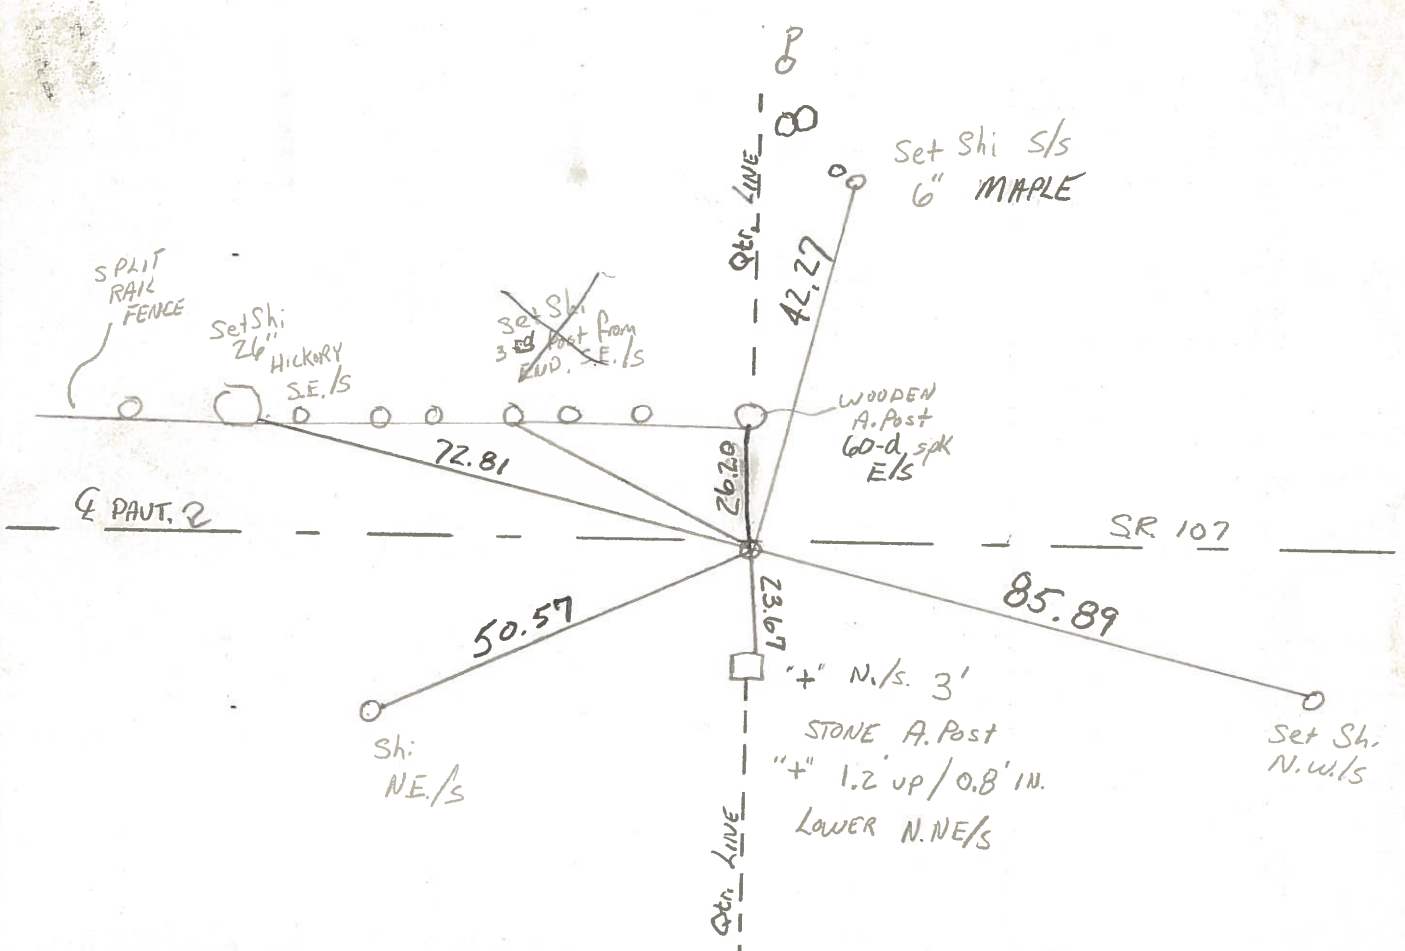 P
Set Shi S/s
6" MAPLE
Qtr. LINE
42.27
SPLIT
RAIL
FENCE
Set Shi
26" HICKORY
S.E./S
Set Shi
3 Ed Post from
END. S.E./S
WOODEN
A. Post
60-d spk
E/S
72.81
26.20
℄ PAVT. 2
S.R. 107
50.57
23.67
85.89
"+" N./s. 3'
STONE A. Post
"+" 1.2' up / 0.8' IN.
LOWER N.NE/s
Shi
N.E./s
Set Shi
N.W./s
Qtr. LINE